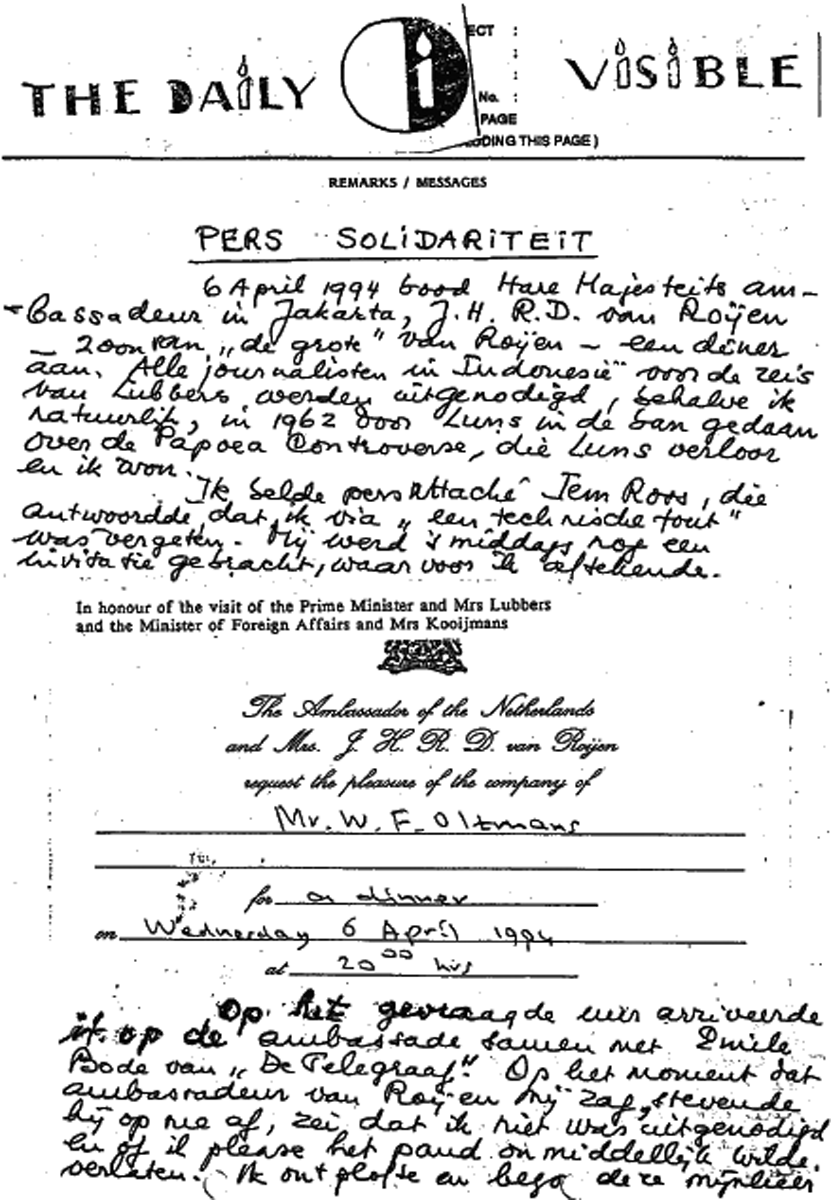 THE DAILY i VISIBLE
ECT :
:
:
No. :
PAGE
UDING THIS PAGE )
REMARKS / MESSAGES
PERS SOLIDARITEIT
6 April 1994 bood Hare Majesteits am-
bassadeur in Jakarta, J.H.R.D. van Roijen
- zoon van „de grote" van Roijen - een diner
aan. Alle journalisten in Indonesië voor de reis
van Lubbers werden uitgenodigd, behalve ik
natuurlijk, in 1962 door Luns in de ban gedaan
over de Papoea Controverse, die Luns verloor
en ik won.
Ik belde pers Attaché Jem Roos, die
antwoordde, dat ik via „een technische fout"
was vergeten. Mij werd 's middags nog een
invitatie gebracht, waar voor ik aftekende.
In honour of the visit of the Prime Minister and Mrs Lubbers
and the Minister of Foreign Affairs and Mrs Kooijmans
The Ambassador of the Netherlands
and Mrs. J. H. R. D. van Roijen
request the pleasure of the company of
Mr. W. F. Oltmans
for a dinner
on Wednesday 6 April 1994
at 20 00 hrs
Op het gevraagde uur arriveerde
ik op de ambassade samen met Emile
Bode van „De Telegraaf". Op het moment dat
ambassadeur van Roijen mij zag, stevende
hij op me af, zei dat ik niet was uitgenodigd
en of ik please het pand onmiddellijk wilde
verlaten. Ik ontplofte en begon deze mijnheer